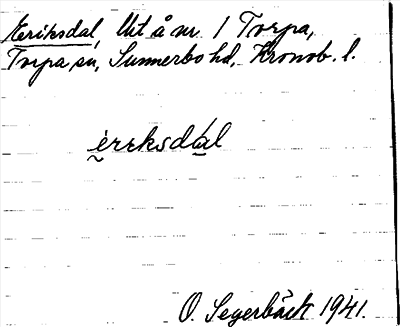 Eriksdal, Utå nr. 1 Torpa,
Torpa sn, Sunnerbo hd, Kronob. l.
èrɩksdàl
O. Segerbäck 1941.